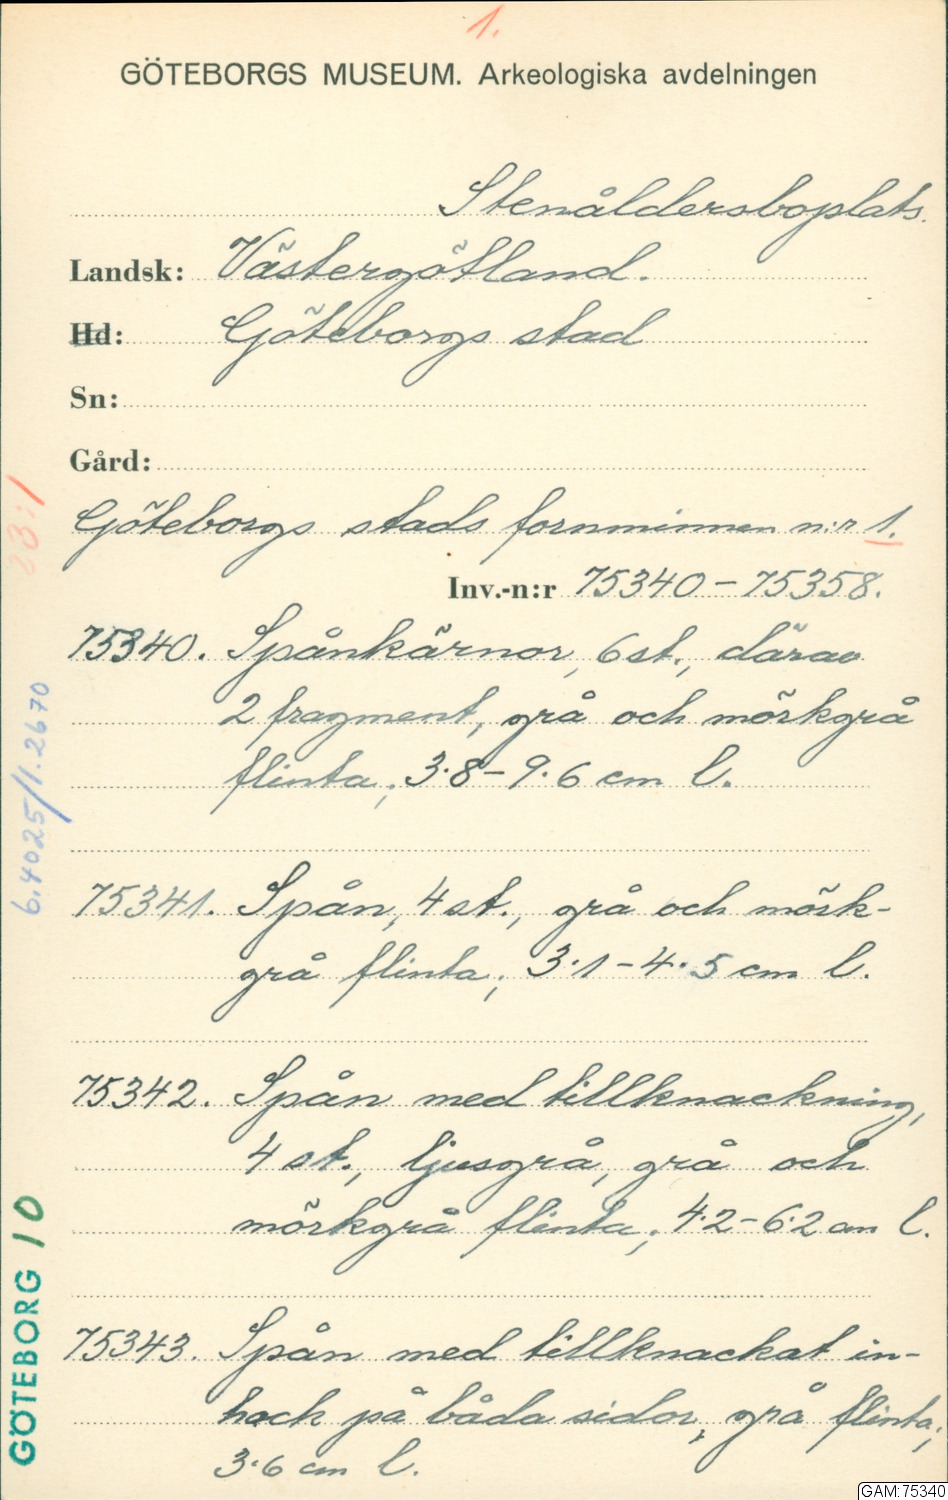 1.
GÖTEBORGS MUSEUM. Arkeologiska avdelningen
Stenåldersboplats.
Landsk: Västergötland.
Hd: Göteborgs stad
Sn:
Gård:
Göteborgs stads fornminnen n:r 1.
Inv.-n:r 75340-75358.
75340. Spånkärnor, 6 st., därav
2 fragment, grå och mörkgrå
flinta; 3·8-9·6 cm l.
75341. Spån, 4 st., grå och mörk-
grå flinta; 3·1-4·5 cm l.
75342. Spån med tillknackning,
4 st., ljusgrå, grå och
mörkgrå flinta; 4·2-6·2 cm l.
75343. Spån med tillknackat in-
hack på båda sidor, grå flinta;
3·6 cm l.
23:1
6.4025/1.2670
GÖTEBORG 10
GAM:75340